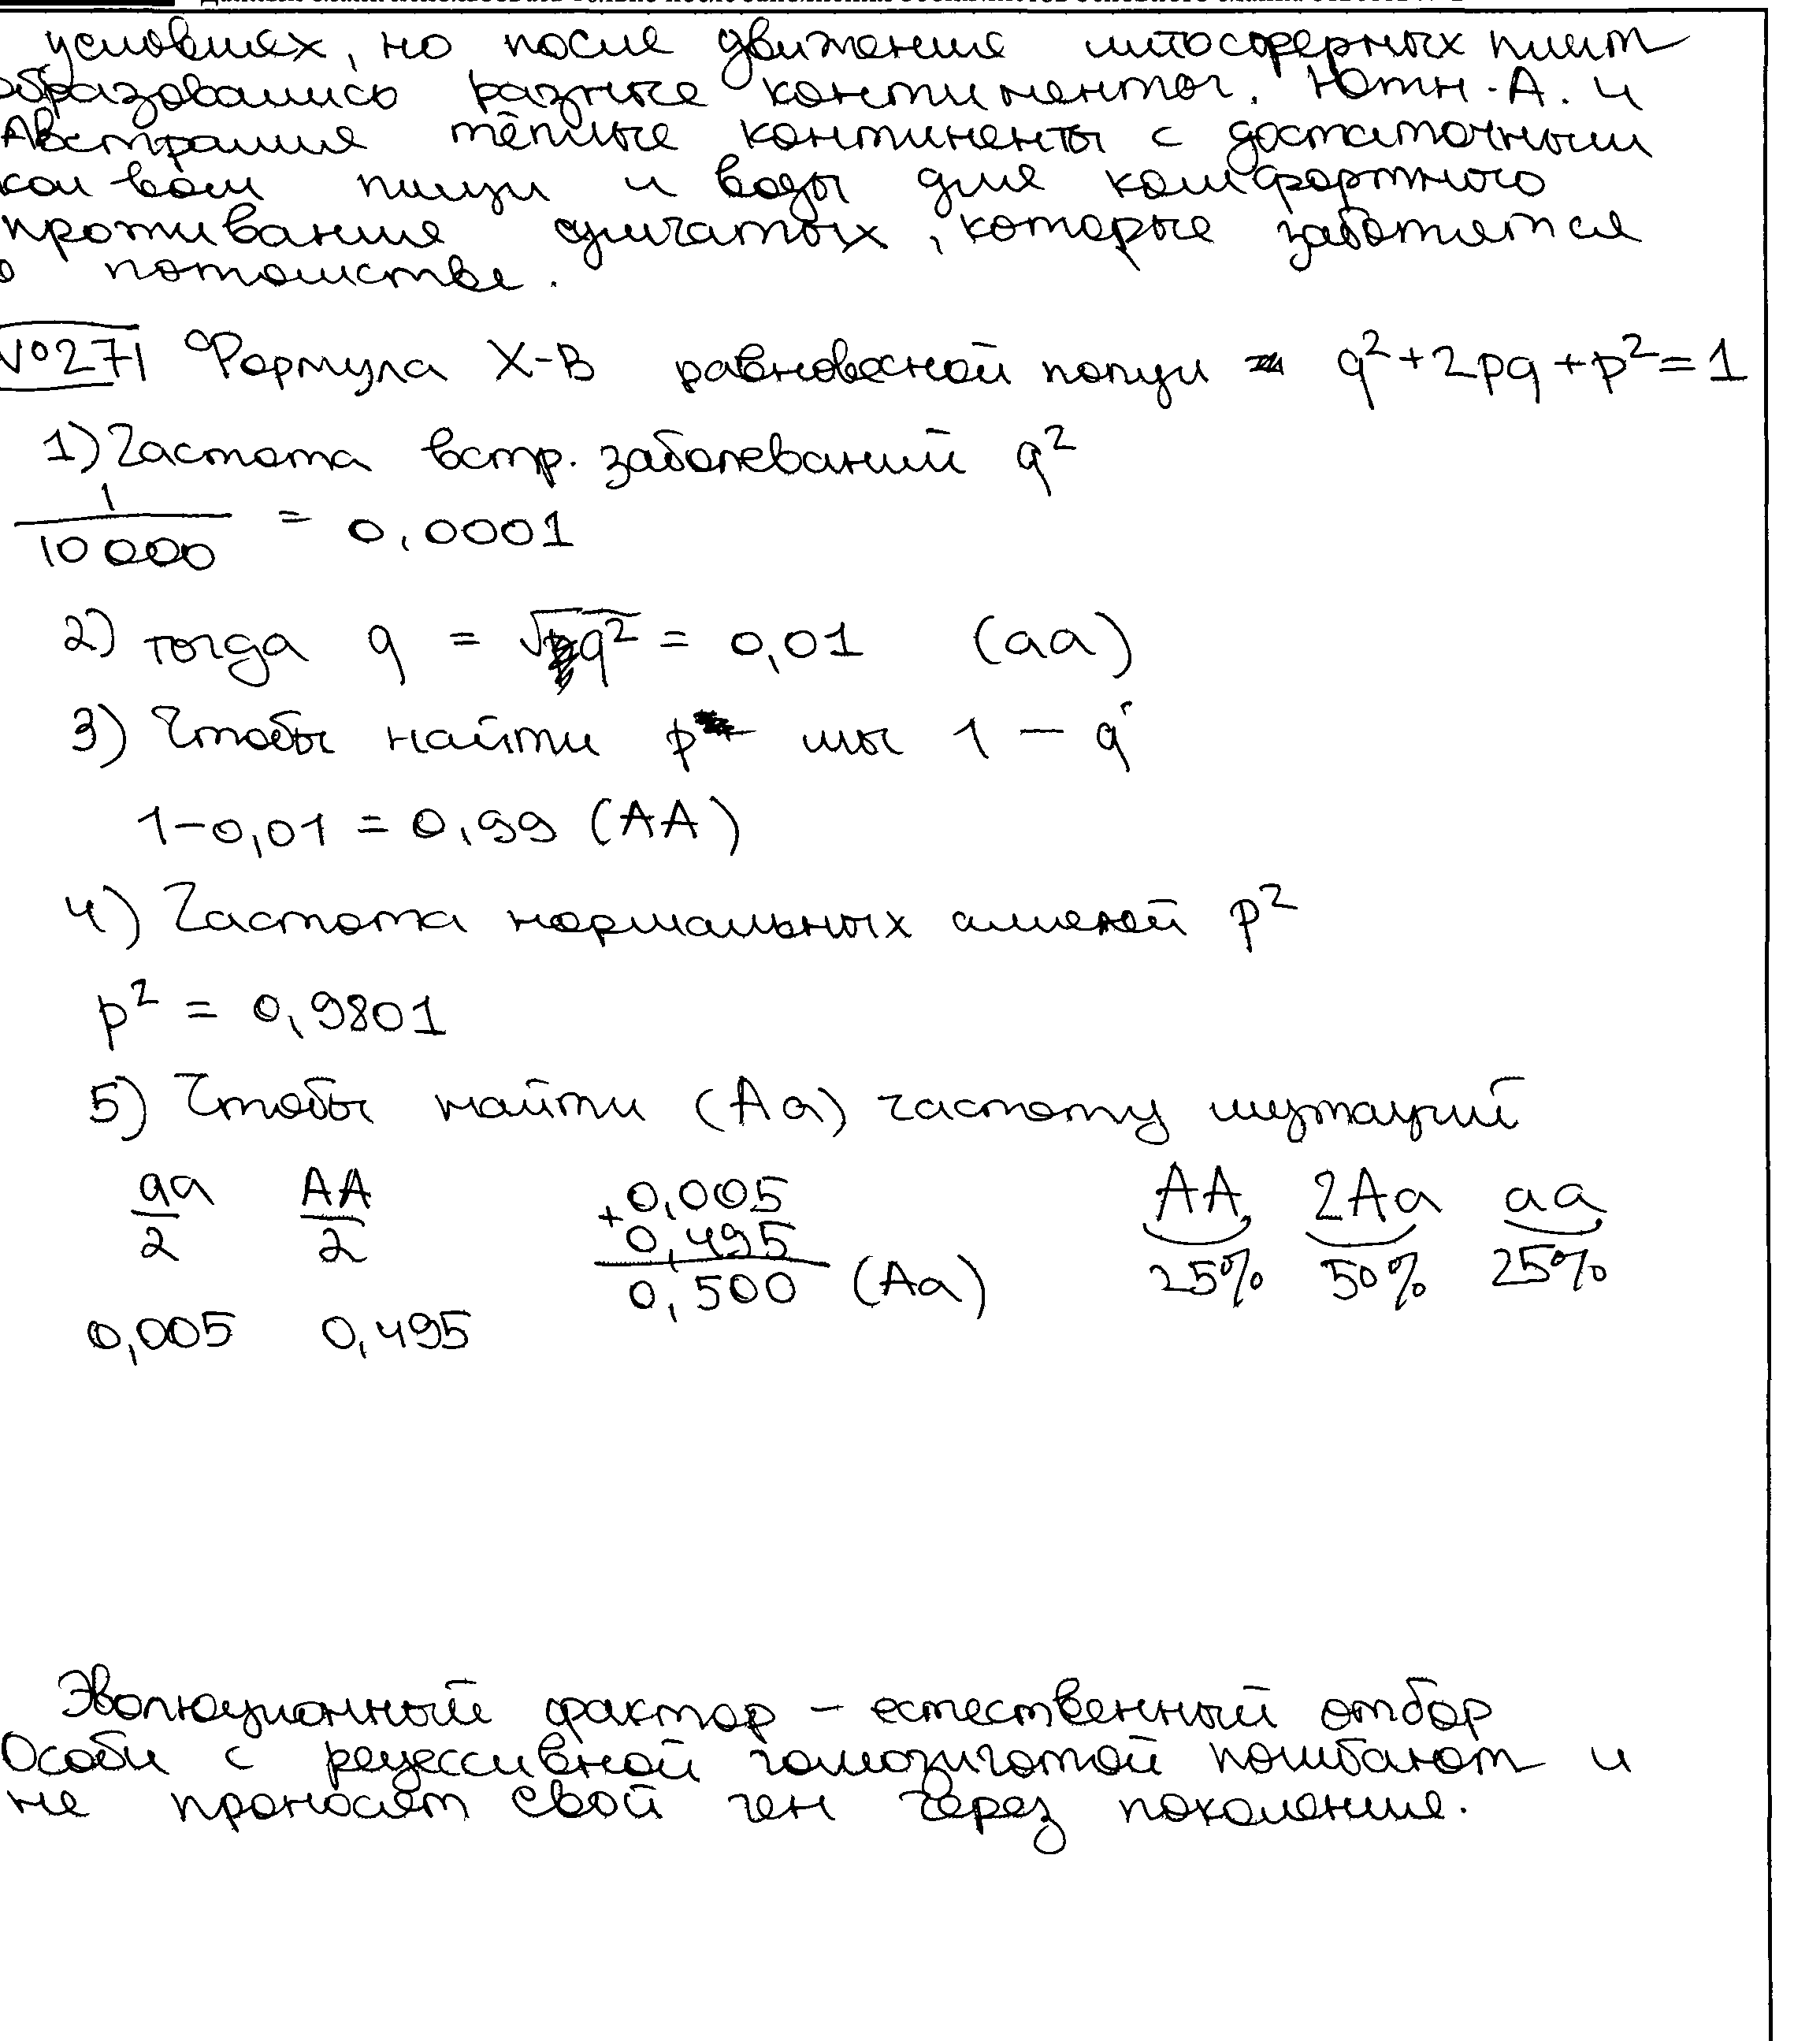 условиях, но после движения литосферных плит
образовались разные континенты. Южн. А. и
Австралия тёплые континенты с достаточным
кол-вом пищи и воды для комфортного
проживания сумчатых, которые заботятся
о потомстве.
№27 Формула Х-В равновесной популяции q²+2pq+p²=1
1) Частота встр. заболеваний q²
1/10 000 = 0,0001
2) тогда q = √q² = 0,01 (aa)
3) Чтобы найти p мы 1 – q
1–0,01 = 0,99 (AA)
4) Частота нормальных аллелей p²
p² = 0,9801
5) Чтобы найти (Aa) частоту мутаций
aa/2 AA/2 +0,005 AA 2Aa aa
0,495
0,500 (Aa) 25% 50% 25%
0,005 0,495
Эволюционный фактор – естественный отбор
Особи с рецессивной гомозиготой погибают и
не проносят свой ген через поколения.